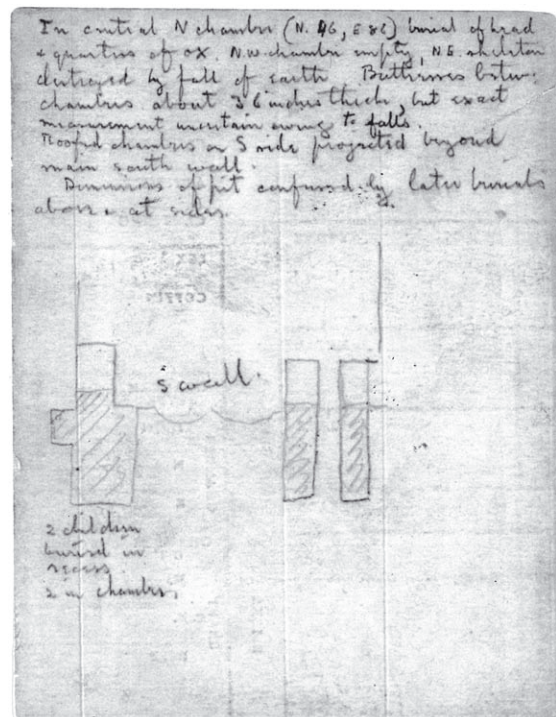 In central N chamber (N. 46, E 86) burial of head
& quarters of ox. N.W. chamber empty, N.E. skeleton
destroyed by fall of earth. Buttresses betw:
chambers about 36 inches thick, but exact
measurement uncertain owing to falls.
Roofed chambers on S side projected beyond
main south wall.
Dimensions of pit confused by later burials
above & at sides.
S wall.
2 children
buried in
recess
2 in chamber.